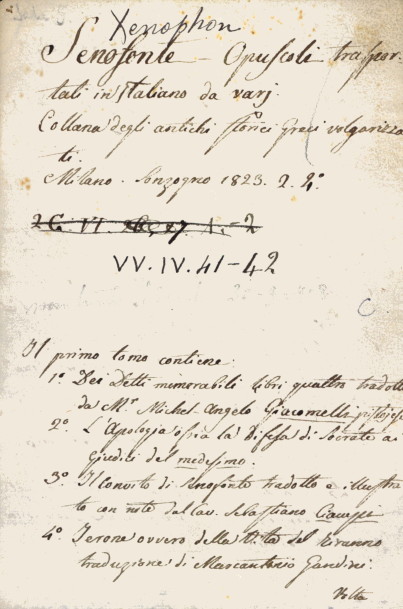 Xenophon
Senofonte - Opuscoli traspor-
tati in Italiano da varj.
Collana degli antichi storici Greci volgarizza
ti.
Milano. Sonzogno 1823. 2. 4°.
VV. IV. 41-42
C
Il primo tomo contiene:
1°. Dei Detti memorabili libri quattro tradotti
da Mr. Michel-Angelo Giacomelli pistojese
2°. L'Apologia ossia la Difesa di Socrate ai
Giudici del medesimo.
3°. Il Convito di Senofonte tradotto e illustra
to con note dal cav. Sebastiano Ciampi
4°. Jerone ovvero della Vita del tiranno
traduzione di Marcantonio Gandini.
Volta